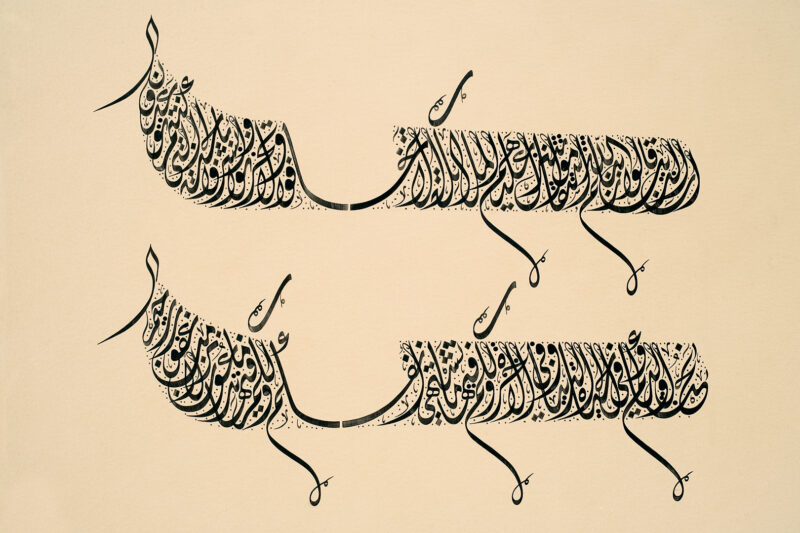 إن الذين قالوا ربنا الله ثم استقاموا تتنزل عليهم الملائكة ألا تخافوا ولا تحزنوا وأبشروا بالجنة التي كنتم توعدون
نحن أولياؤكم في الحياة الدنيا وفي الآخرة ولكم فيها ما تشتهي أنفسكم ولكم فيها ما تدعون نزلا من غفور رحيم